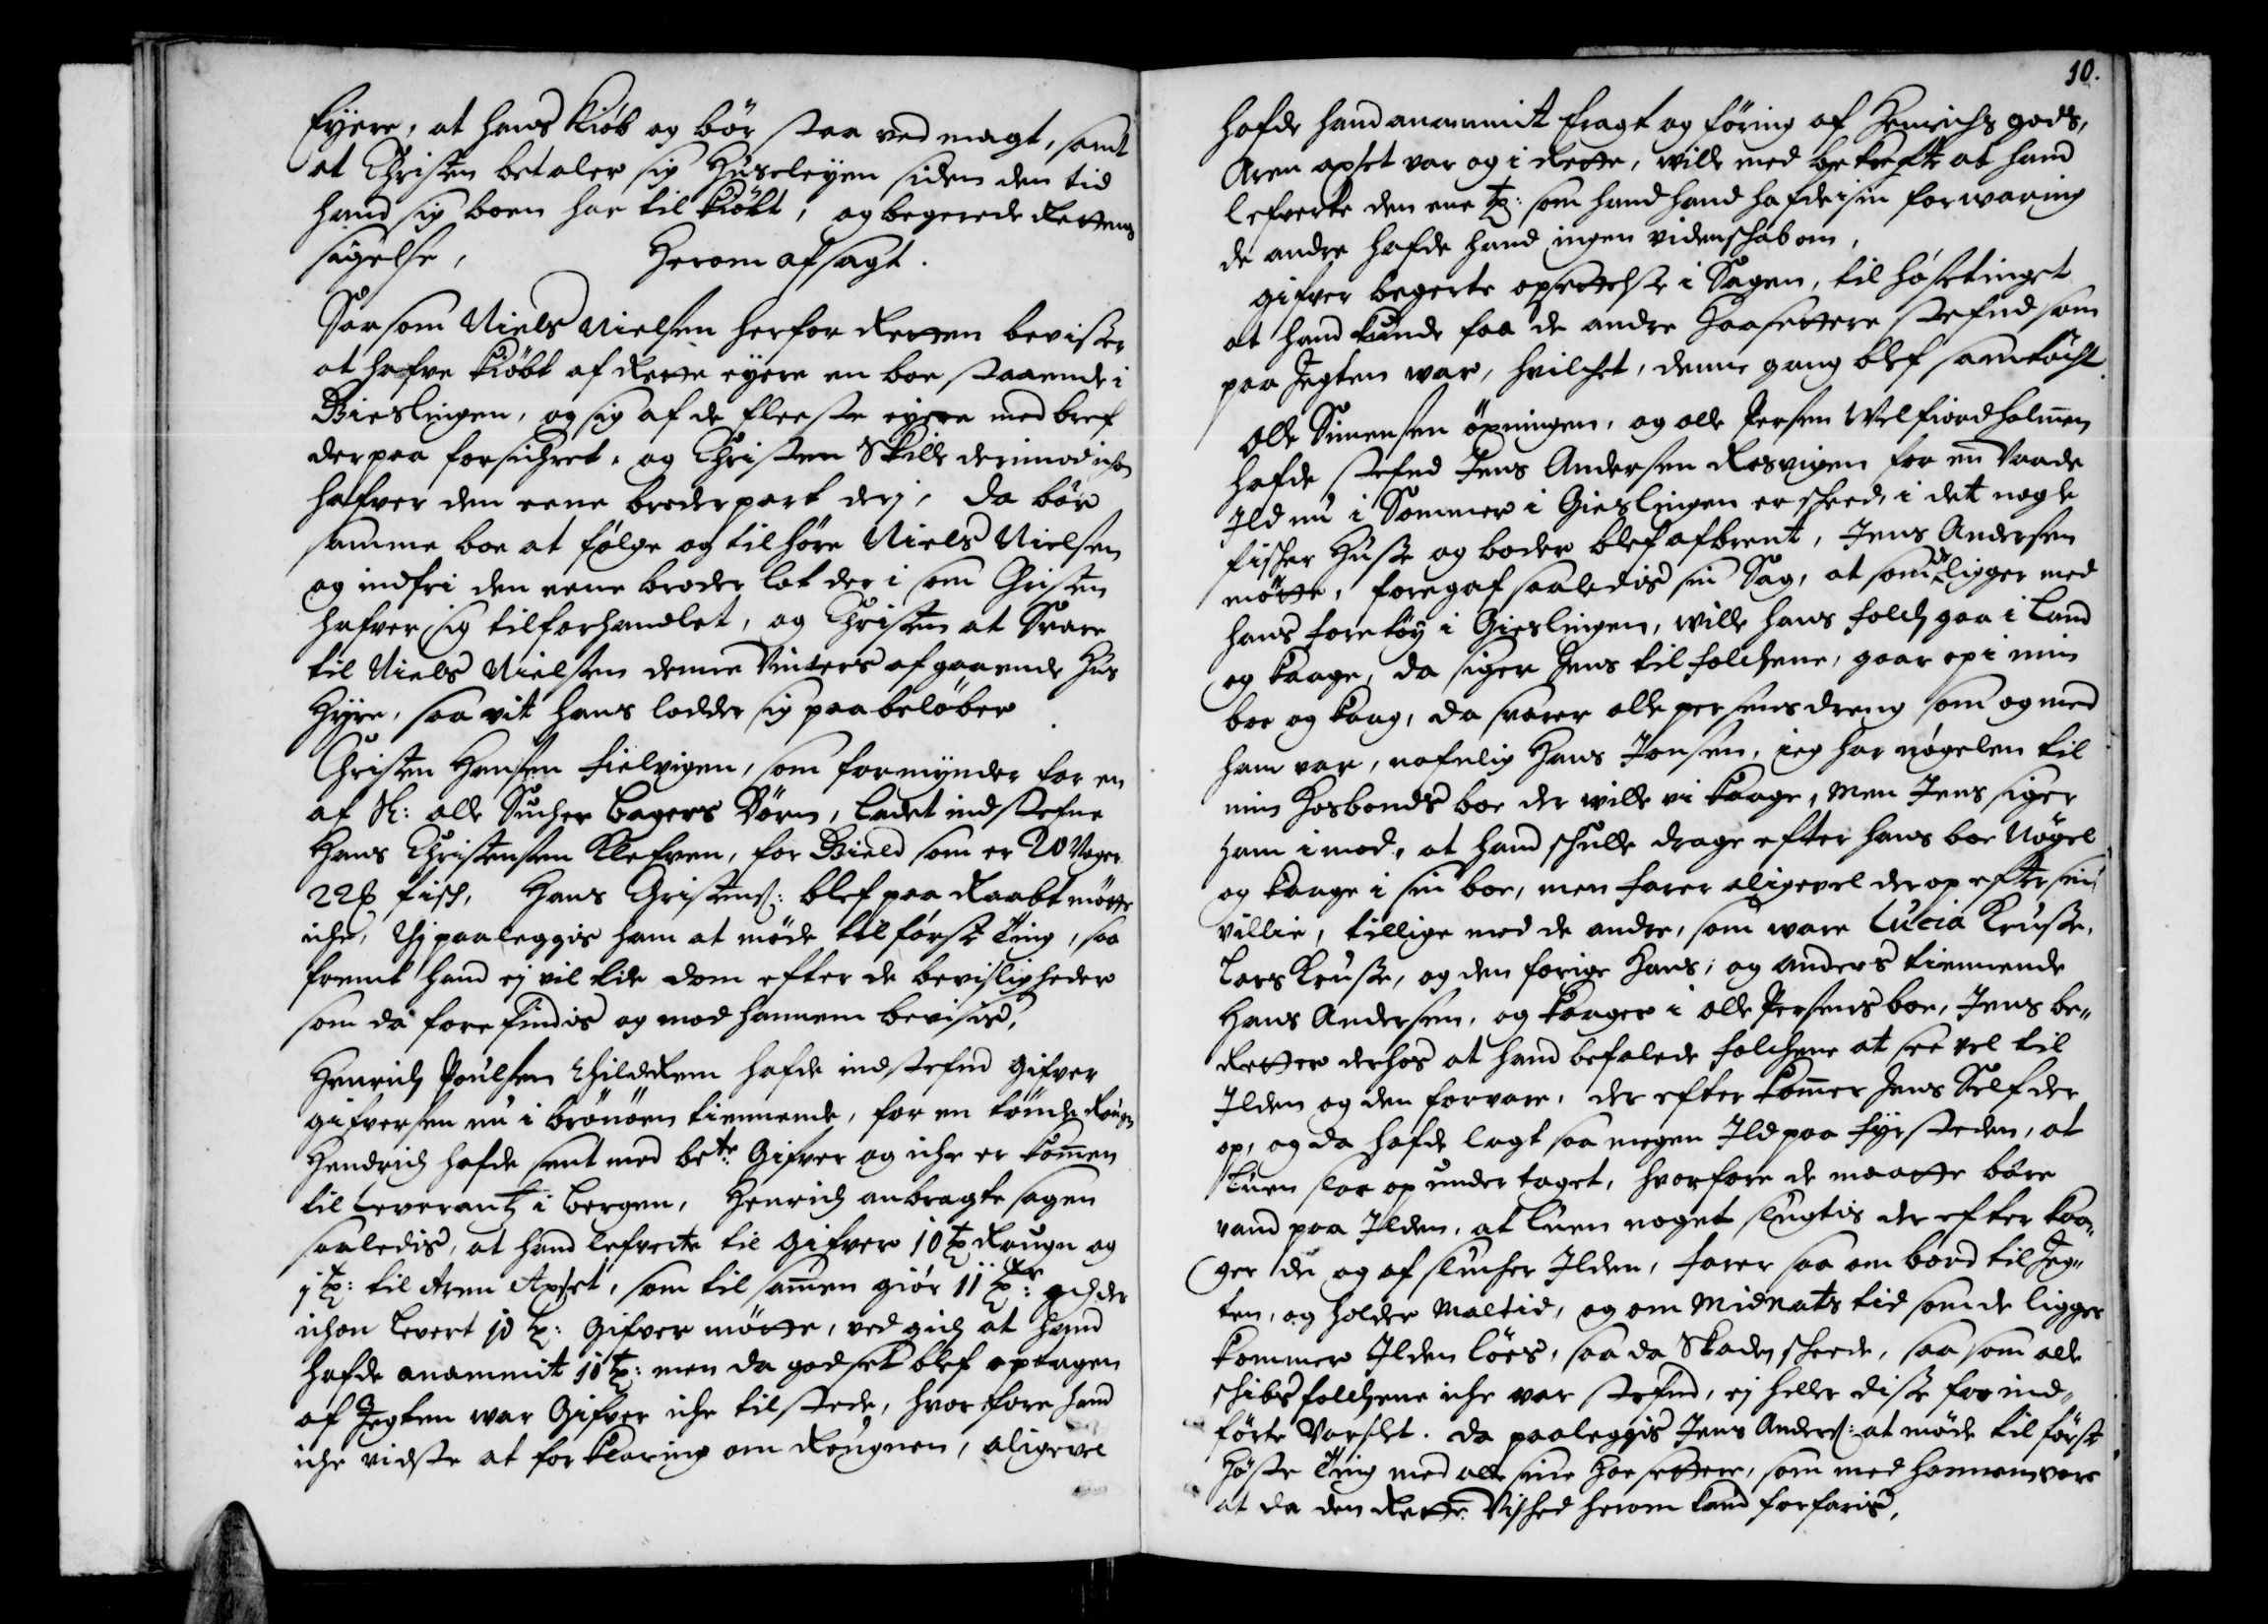 Eyere, at hans Kiöb og bör staa ved magt, samt
at Christen betaler sig Huusleyen siden den tid
hand sig boen har til kiöbt, og begerede Rettens
sigelse, Herom afsagt.
Saasom Niels Nielsen herfor Retten beviser
at hafve kiöbt af Rette eyere en boe staaende i
Gieslingen, og sig af de fleeste eyere med bref
derpaa forsichret, og Christen Skille derimod ichon
hafver den eene broderpart derj, da bör
samme boe at fölge og tilhöre Niels Nielsen
og indfri den eene broder lot der i som Christen
hafver sig tilforhandlet, og Christen at Svare
til Niels Nielsen denne Vinters afgaaende Huus
Hyre, saa vit hans lodder sig paabelöber
Christen Hansen Fielvigen, som formynder for en
af Sl: olle Bagers Börn, ladet indstefne
Hans Christensen Klefven, for Gield som er 20 Voger
22 fisch, Hans Christens: blef paa Raabt mötte
iche, Thj paaleggis ham at möde til förste Ting, saa
fremt hand ej vil lide dom efter de bevisligheder
som da forefindis og mod hannem bevisis,
Henrich Poulsen hafde indstefnd Gifver
Gifversen nu i brönöen tiennende, for en tönde Rougn
Hendrich hafde sent med bete: Gifver og iche er kommen
til Leverantz i Bergen, Henrich anbragte sagen
saaledis, at hand lefverte til Gifver 10 tr Rougn og
1 tr: til Aren Apset, som til sammen giör 11 tr:
ichon levert 10 tr: Gifver mötte, ved gich at hand
hafde anammit 10 tr: men da godset blef optagen
af Jegten war Gifver iche tilstede, hvorfore hand
iche vidste at forklaring om Rougnen, aligevel
10.
hafde hand anammit fragt og föring af Henrichs gods,
Aren apset var og i Rette, wille med bekrefte at hand
lefverte den ene tr: som hand hand hafde i sin forwaring
de andre hafde hand ingen videnschab om,
gifver begerte opsettelse i Sagen, til höstetinget
at hand kunde faa de andre Haasettere stefnd som
paa Jegten war, hvilchet, denne gang blef samtöcht.
olle Simensen öxningen, og olle Persen Welfiordholmen
hafde stefnd Jens Andersen Resvigen for en Vaade
Ild nu i Sommer i Gieslingen er scheed, i det nogle
fischer Huuse og boder blef afbrent, Jens Andersen
mötte, foregaf saaledis sin Sag, at som de ligger med
hans faretöy i Gieslingen, wille hans folch gaa i Land
og kaage, da siger Jens til folchene, gaar op i min
boe og kaag, da svarer olle persens dreng som og med
ham var, nafnlig Hans Jonsen, ieg har nögelen til
min Hosbonds boe der wille vi kaage, Men Jens siger
ham imod, at hand schulle drage efter hans boe Nögel
og kaage i sin boe, men farer aligevel der op efter sin
villie, tillige med de andre, som ware Lucia Kruse,
Lars Kruse, og den forige Hans, og Anders tiennende
Hans Andersen, og kaager i olle Persens boe, Jens be„
Retter derhos at hand befalede folchene at see vel til
Ilden og den forvare, der efter kommer Jens Self der
op, og da hafde lagt saa megen Ild paa Fyrsteden, at
luen sloe op under taget, hvorfore de maatte bære
vand paa Ilden, at luen noget slugtis der efter kaa„
ger de og af slucher Ilden, farer saa om bord til Jeg„
ten, og holder Maltid, og om Midnats tid som de ligger
kommer Ilden löes, saa da Skaden scheede, saa som alle
schibsfolchene iche var stefnd, ej heller disse for ind„
förte Varslet. da paaleggis Jens Anders: at möde til först
Höste Ting med alle sine Haasettere, som med hannem vare
at da den Rette Vished herom kand forfaris,